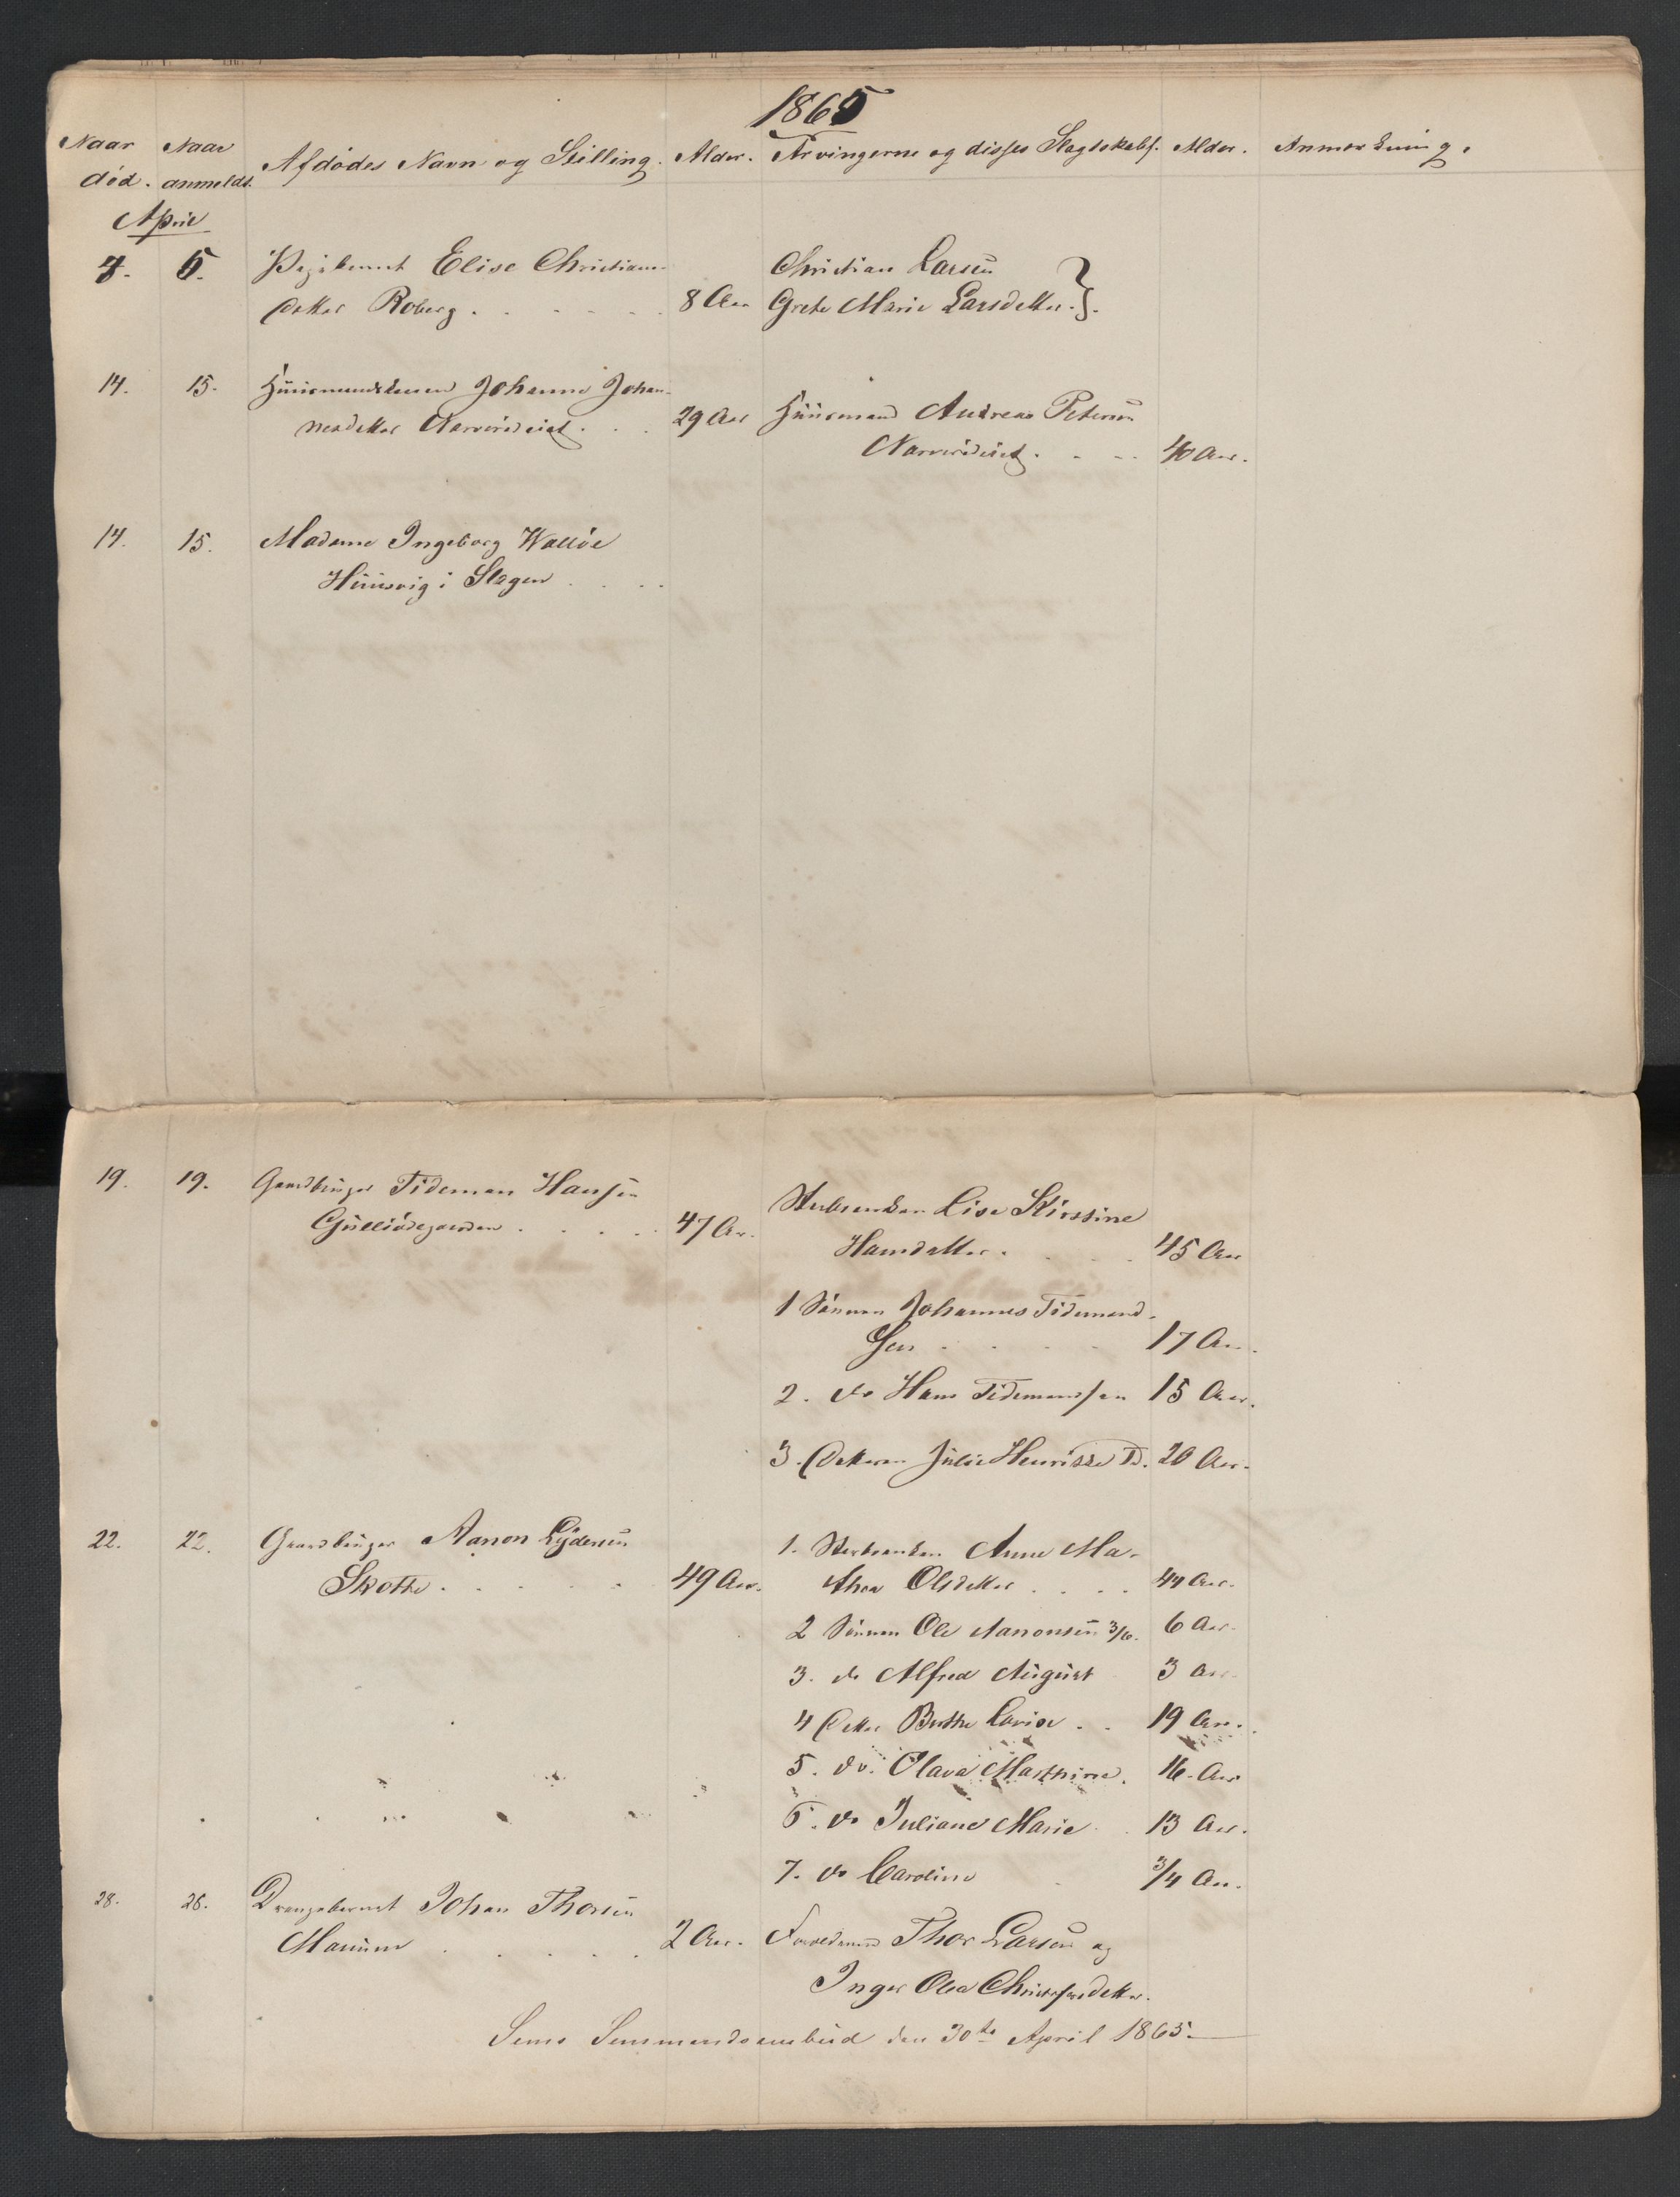 1865
Naar død. Naar anmeldt. Afdødes Navn og Stilling. Alder. Arvingerne og disses Slagtskabsf. Alder. Anmærkning.
April
4. 5. Pigebarnet Elise Christians- Christian Larsen
datter Roberg . . . . . . 8 Aar Grethe Marie Larsdatter }.
14. 15. Huusmandskonen Johanne Johan-
nesdatter Narverødeiet . . . 29 Aar Huusmand Andreas Petersen
Narverødeiet . . . 40 Aar.
14. 15. Madame Ingeborg Walløe
Huusvig i Slagen . . . .
19. 19. Gaardbruger Tideman Hansen Sterbsenken Lise Kirstine
Gulliødegaarden . . . . 47 Aar.
Hansdatter . . . . 45 Aar
1 Sønnen Johannes Tidemand-
Sen . . . . 17 Aar.
2. do Hans Tidemandsen 15 Aar.
3. Datteren Julie Henrikke Td. 20 Aar.
22. 22. Gaardbruger Aanon Lydersen 1. Sterbenken Anne Ma-
Skotte . . . . . . 49 Aar. thea Olsdatter . . . . 44 Aar.
2 Sønnen Ole Aanonsen 3/6. 6 Aar.
3. do Alfred August 3 Aar
4 Datter Berthe Lovise . . 19 Aar.
5. do. Olava Mathine. 16. Aar
6. do Juliane Marie . . 13 Aar.
7. do Caroline . 3/4 Aar.
28. 28. Drengebarnet Johan Thorsen
. . . . . 2 Aar. Forældrene Thor Larsen og
Inger Olea Christofersdatter.
Sems Lensmandsombud den 30te April 1865.